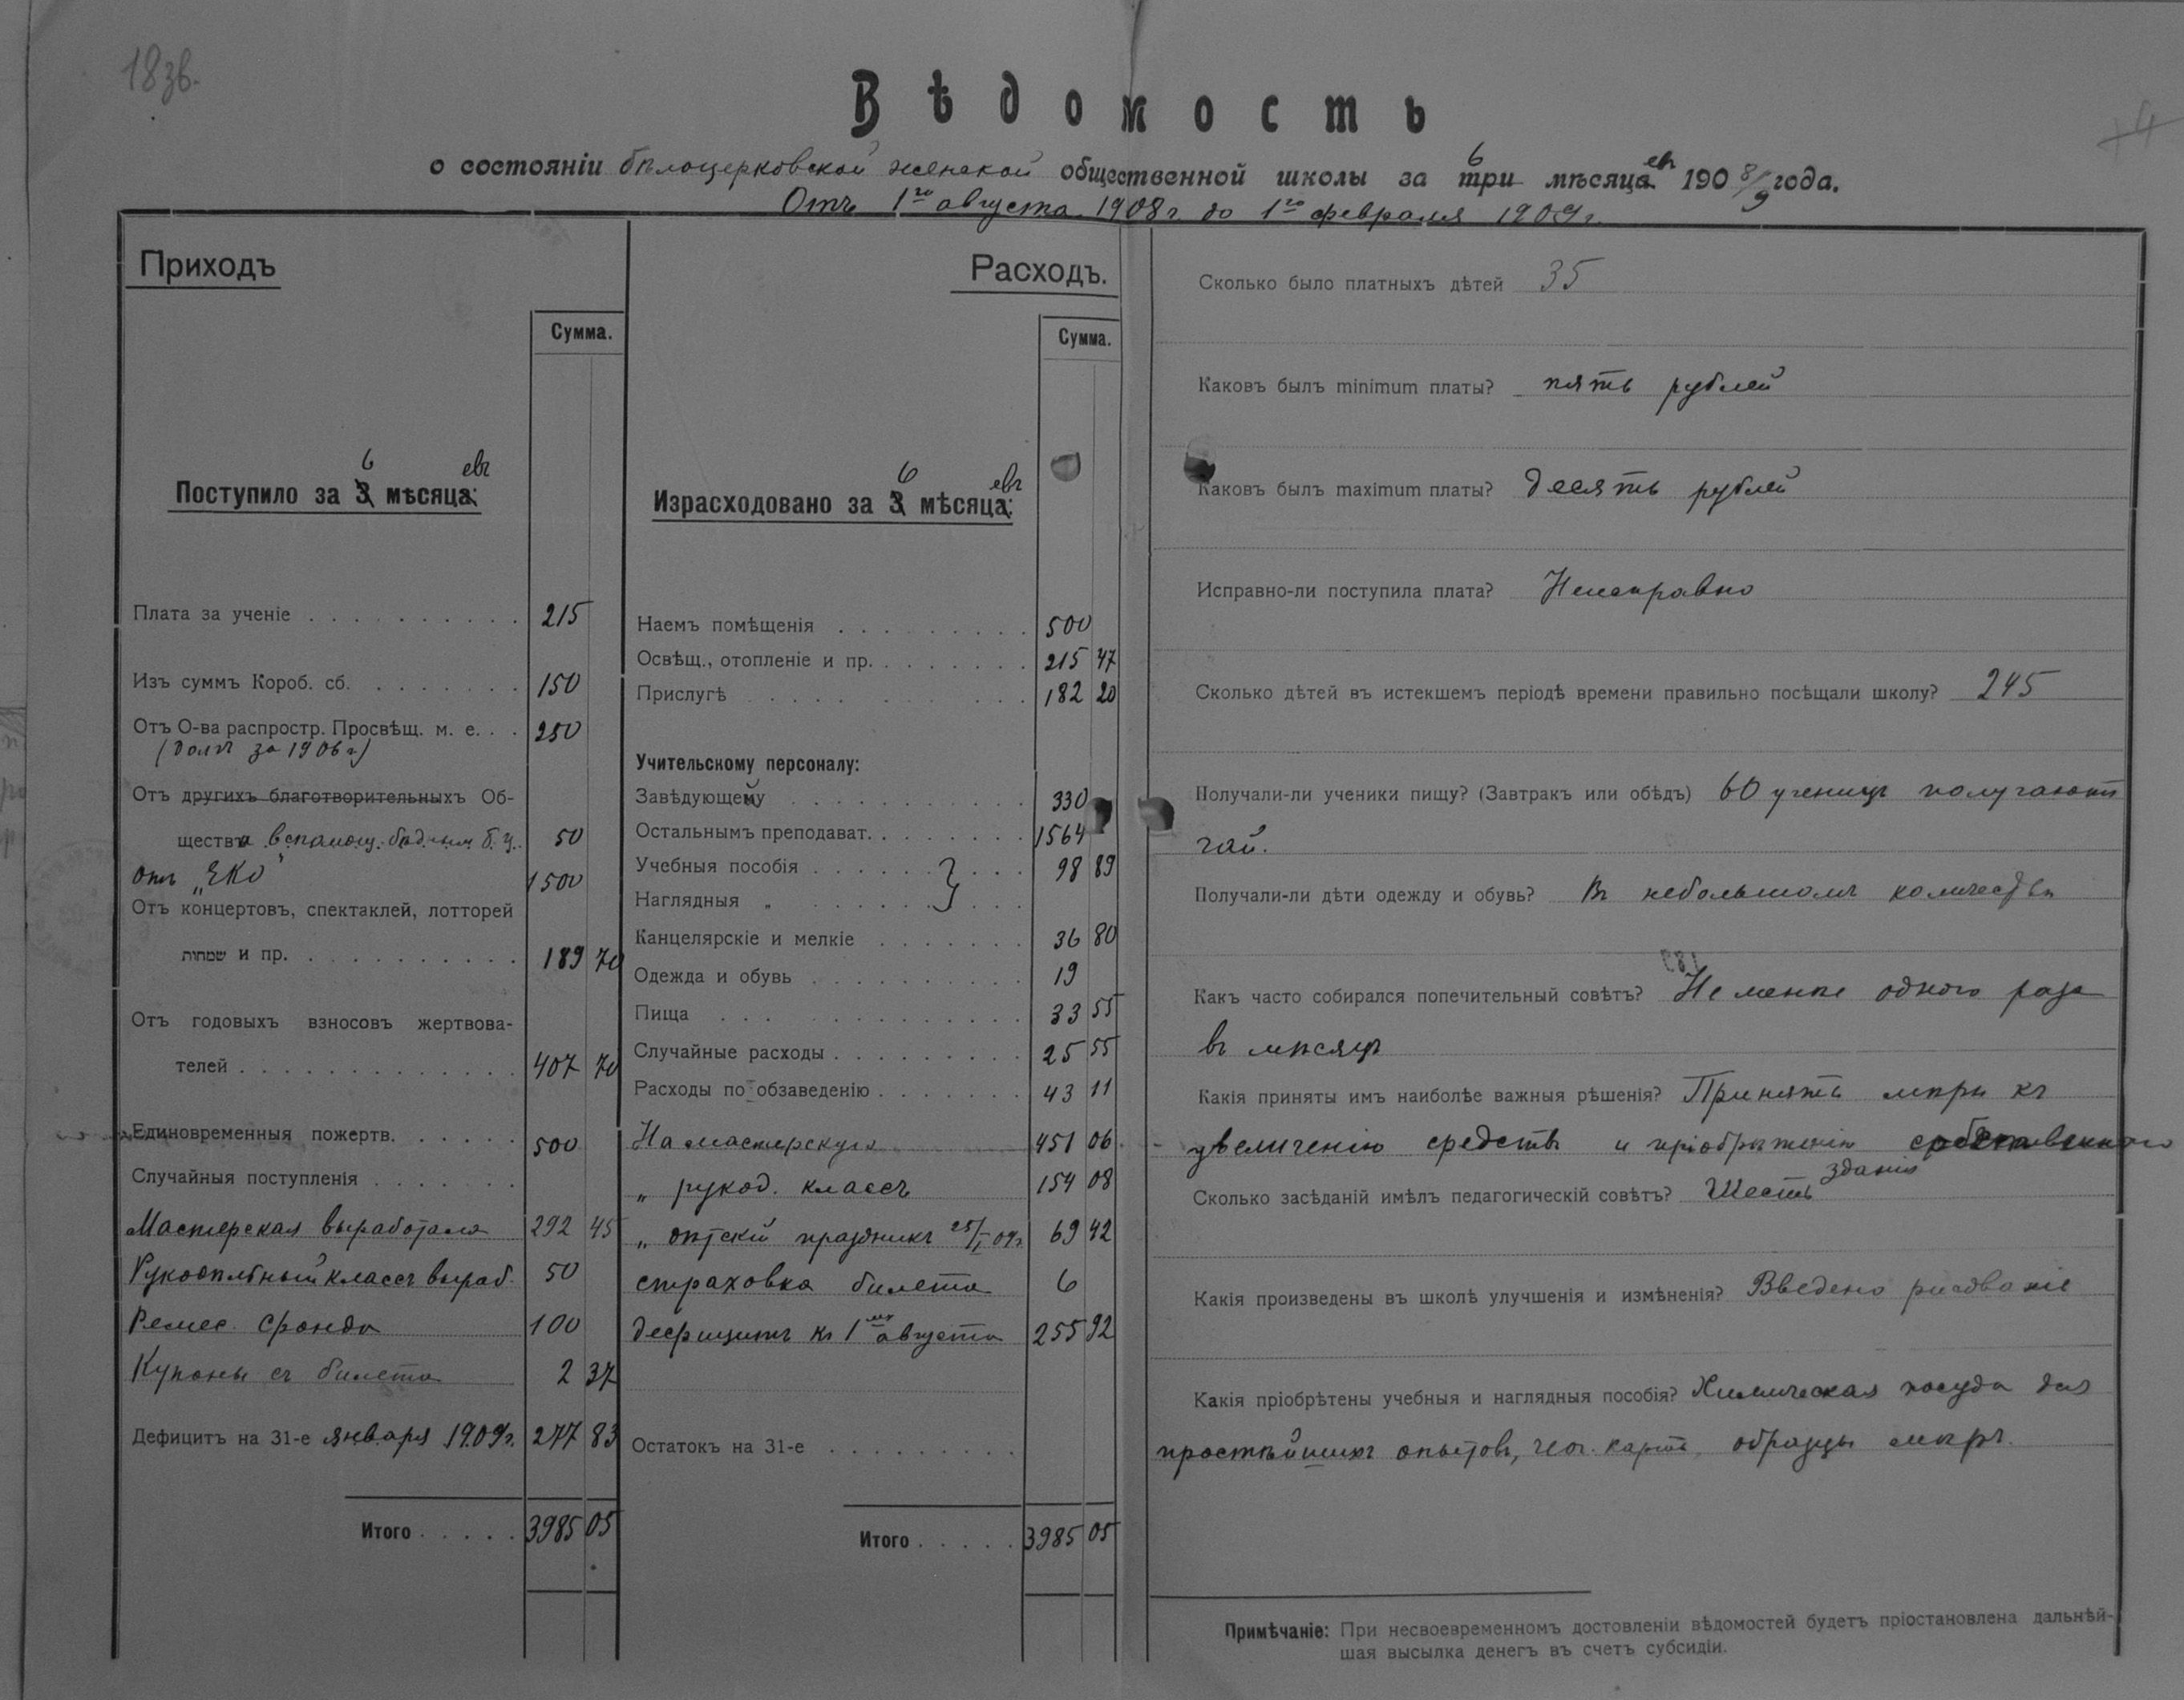 18 зв.
4
Вѣдомость
о состояніи бѣлоцерковской женской общественной школы за 6 три мѣсяцевъ 1908/9 года.
Отъ 1го августа 1908 г. до 1го февраля 1909 г.
Приходъ
Сумма.
Поступило за 6 3 мѣсяцевъ:
Плата за ученіе . . . . . . . . . . 215
Изъ суммъ Короб. сб. . . . . . . . 150
Отъ О-ва распростр. Просвѣщ. м. е. . . 250
(долгъ за 1906 г)
Отъ другихъ благотворительныхъ Об-
щества вспомощ. бѣднымъ Б. Ц. 50
отъ „ЕКО" 1500
Отъ концертовъ, спектаклей, лотторей
שמחות и пр. . . . . . . . . . . 189 70
Отъ годовыхъ взносовъ жертвова-
телей . . . . . . . . . . . . . 407 70
Единовременныя пожертв. . . . . . 500
Случайныя поступленія . . . . . . .
Мастерская выработала 292 45
Рукодѣльный классъ выраб. 50
Ремес. фонда 100
Купоны съ билета 2 37
Дефицитъ на 31-е января 1909 г. 277 83
Итого . . . . . 3985 05
Расходъ.
Сумма.
Израсходовано за 6 3 мѣсяцевъ:
Наемъ помѣщенія . . . . . . . . . 500
Освѣщ., отопленіе и пр. . . . . . . . 215 47
Прислугѣ . . . . . . . . . 182 20
Учительскому персоналу:
Завѣдующей . . . . . . . . . . . 330
Остальнымъ преподават. . . . . . . . 1564
Учебныя пособія . . . . . . . . . . 98 89
Наглядныя „ . . . . . . . . .
Канцелярскіе и мелкіе . . . . . . . 36 80
Одежда и обувь . . . . . . . . . . 19
Пища . . . . . . . . . . . . . 33 55
Случайные расходы . . . . . . . . . 25 55
Расходы по обзаведенію . . . . . . . 43 11
На мастерскую 451 06
„ рукод. классъ 154 08
„ дѣтскій праздникъ 25/I 09 г. 69 42
страховка билета 6
дефицитъ къ 1му августа 255 92
Остатокъ на 31-е . . . . . . . . .
Итого . . . . . 3985 05
Сколько было платныхъ дѣтей 35
Каковъ былъ minimum платы? пять рублей
Каковъ былъ maximum платы? десять рублей
Исправно-ли поступила плата? Неисправно
Сколько дѣтей въ истекшемъ періодѣ времени правильно посѣщали школу? 245
Получали-ли ученики пищу? (Завтракъ или обѣдъ) 60 ученицъ получаютъ
чай.
Получали-ли дѣти одежду и обувь? Въ небольшомъ количествѣ
Какъ часто собирался попечительный совѣтъ? Не менѣе одного раза
въ мѣсяцъ
Какія приняты имъ наиболѣе важныя рѣшенія? Принять мѣры къ
увеличенію средствъ и пріобрѣтенію собственнаго
зданія
Сколько засѣданій имѣлъ педагогическій совѣтъ? Шесть
Какія произведены въ школѣ улучшенія и измѣненія? Введено рисованіе
Какія пріобрѣтены учебныя и наглядныя пособія? Химическая посуда для
простѣйшихъ опытовъ, геог. карты, образцы мѣръ.
Примѣчаніе: При несвоевременномъ достовленіи вѣдомостей будетъ пріостановлена дальнѣй-
шая высылка денегъ въ счетъ субсидіи.